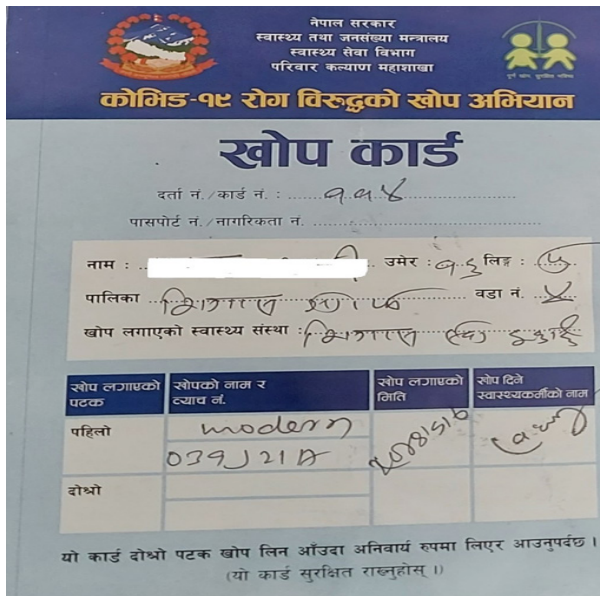 नेपाल सरकार
स्वास्थ्य तथा जनसंख्या मन्त्रालय
स्वास्थ्य सेवा विभाग
परिवार कल्याण महाशाखा
कोभिड-१९ रोग विरुद्धको खोप अभियान
खोप कार्ड
दर्ता नं./कार्ड नं. : ११४
पासपोर्ट नं./नागरिकता नं.
नाम : उमेर : १६ लिङ्ग : पु
पालिका वडा नं. ४
खोप लगाएको स्वास्थ्य संस्था :
खोप लगाएको पटक खोपको नाम र व्याच नं. खोप लगाएको मिति खोप दिने स्वास्थ्यकर्मीको नाम
पहिलो modern
039J21A
दोश्रो
यो कार्ड दोश्रो पटक खोप लिन आँउदा अनिवार्य रुपमा लिएर आउनुपर्दछ ।
(यो कार्ड सुरक्षित राख्नुहोस् ।)